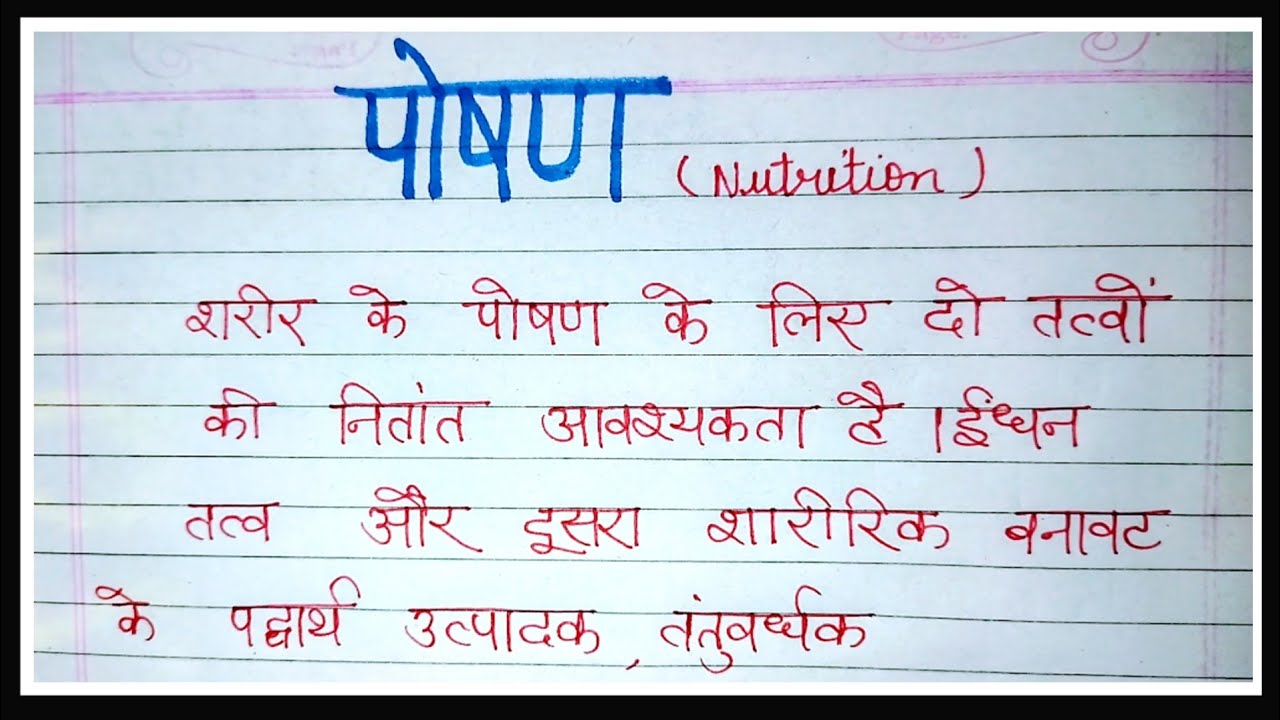 पोषण (Nutrition)
शरीर के पोषण के लिए दो तत्वों
की नितांत आवश्यकता है ।ईंध्धन
तत्व और दूसरा शारीरिक बनावट
के पद्वार्थ उत्पादक, तंतुवर्ध्धक